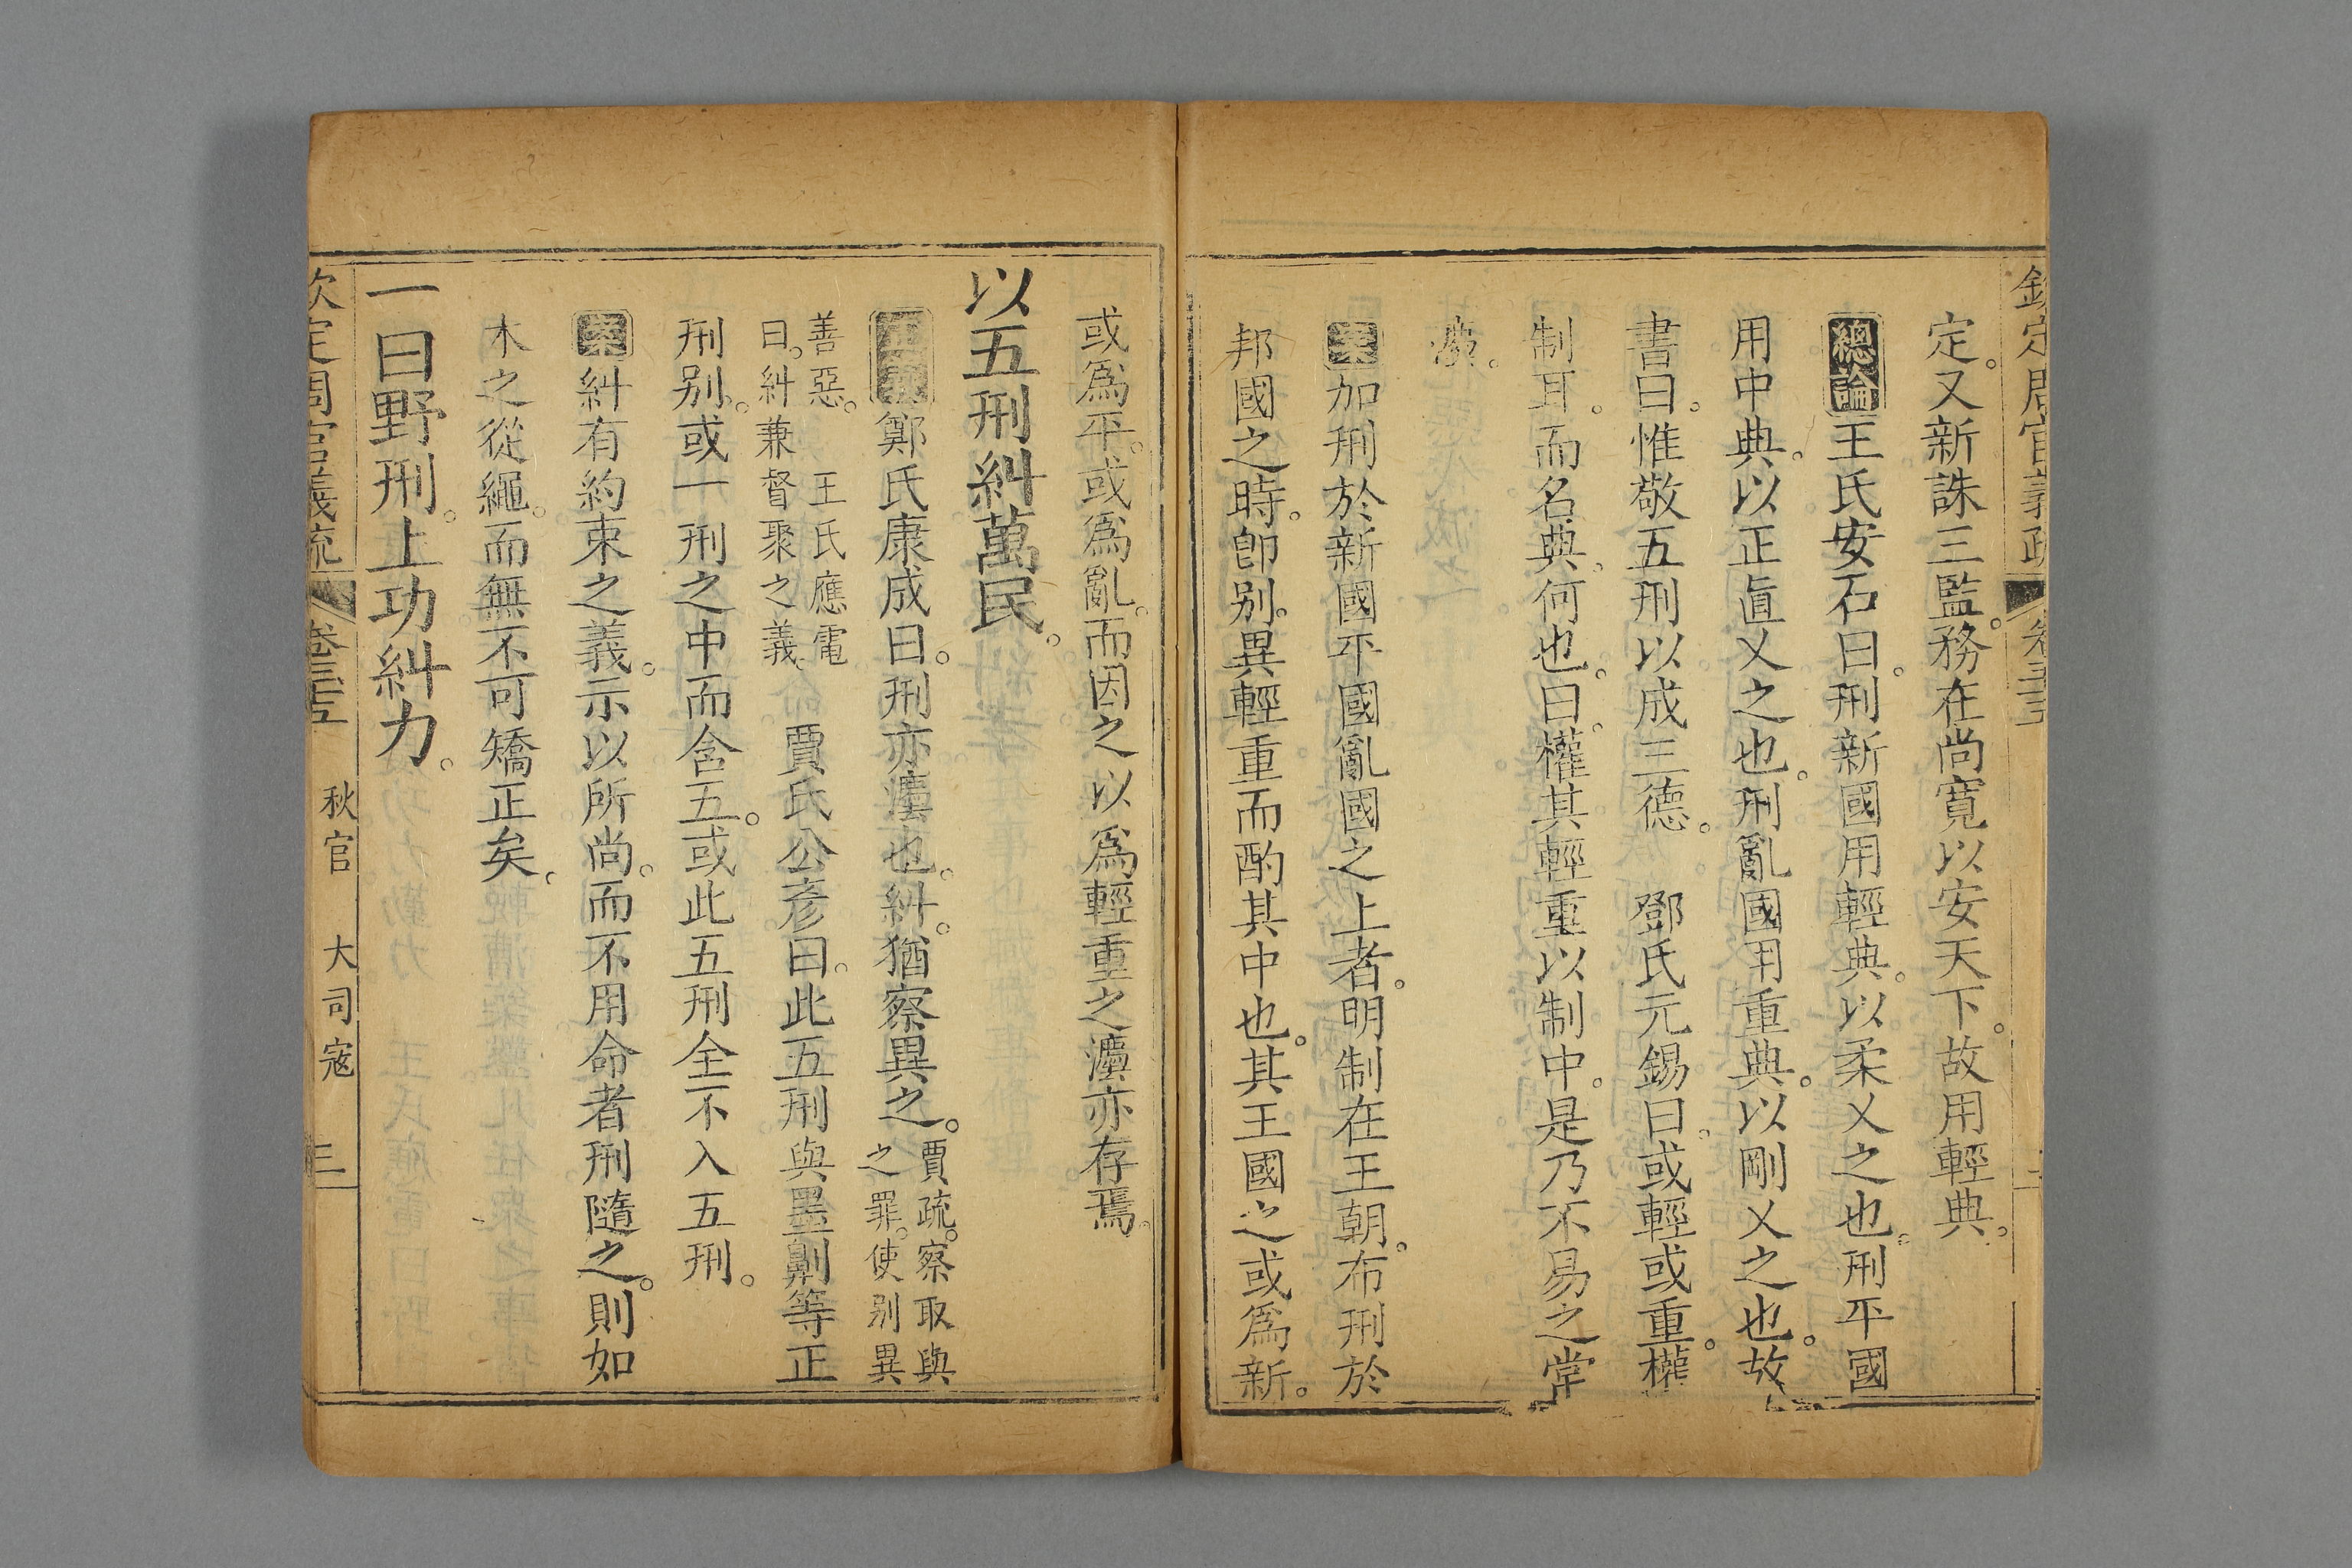 定。又新誅三監。務在尚寬以安天下。故用輕典。
總論王氏安石曰。刑新國用輕典。以柔乂之也。刑平國
用中典。以正直乂之也。刑亂國用重典。以剛乂之也。故
書曰。惟敬五刑以成三德。　鄧氏元錫曰。或輕或重。權
制耳。而名典。何也。曰。權其輕重以制中。是乃不易之常
灋。
案加刑於新國平國亂國之上者。明制在王朝。布刑於
邦國之時。卽別異輕重而酌其中也。其王國之或爲新。
或爲平。或爲亂。而因之以爲輕重之灋亦存焉。
以五刑糾萬民。
正義鄭氏康成曰。刑亦灋也。糾。猶察異之。賈疏。察取與
之罪。使別異
善惡。　王氏應電
曰。糾兼督聚之義。　賈氏公彥曰。此五刑與墨劓等正
刑別。或一刑之中而含五。或此五刑全不入五刑。
案糾有約束之義。示以所尚。而不用命者刑隨之。則如
木之從繩。而無不可矯正矣。
一曰野刑。上功糾力。
欽定周官義疏　卷三十五　秋官　大司寇　三